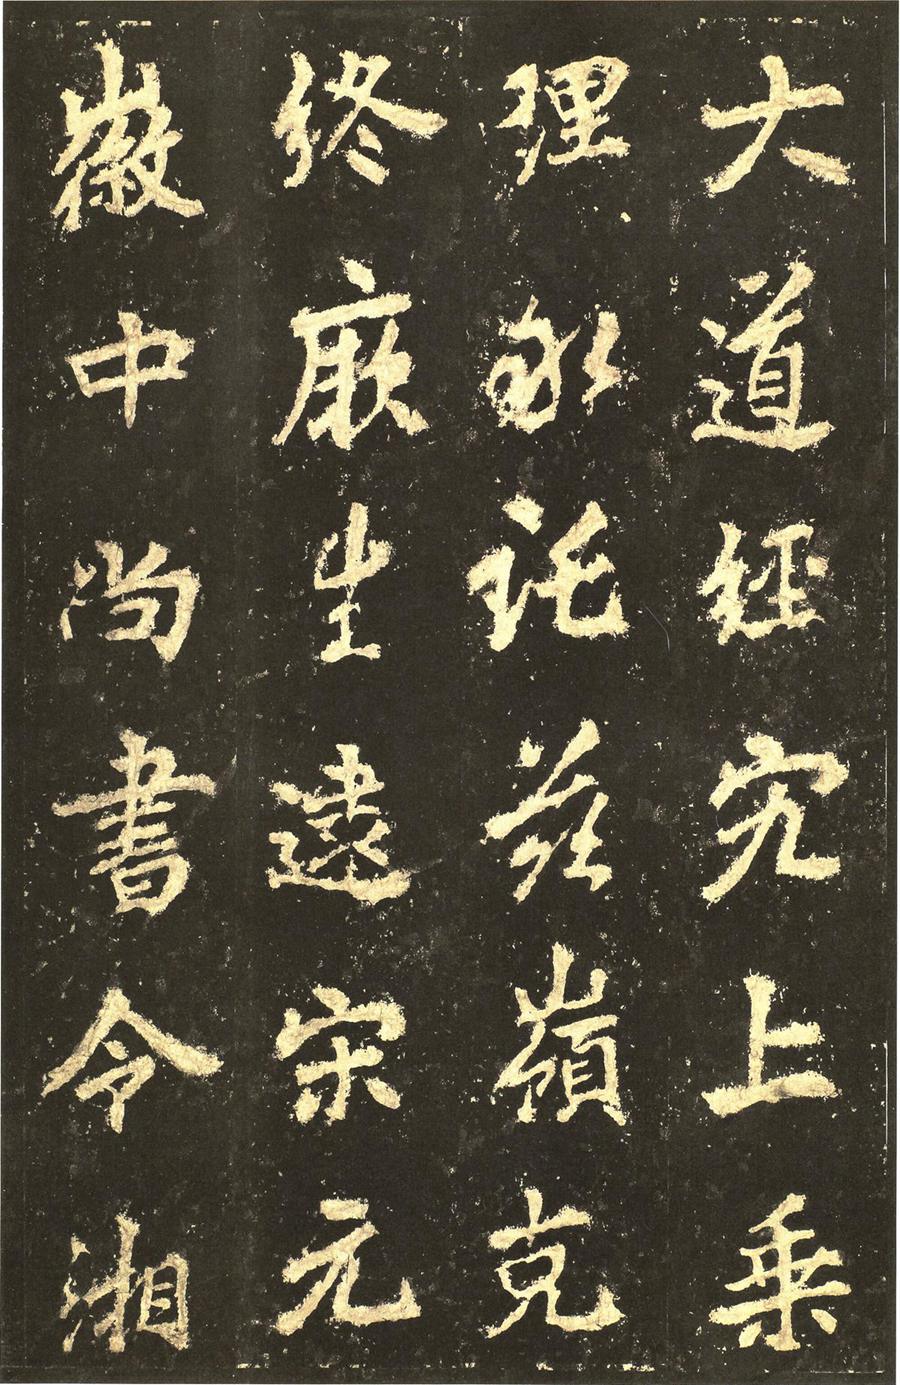 大道經究上乘
理永託茲嶺克
終厥生逮宋元
徽中尚書令湘